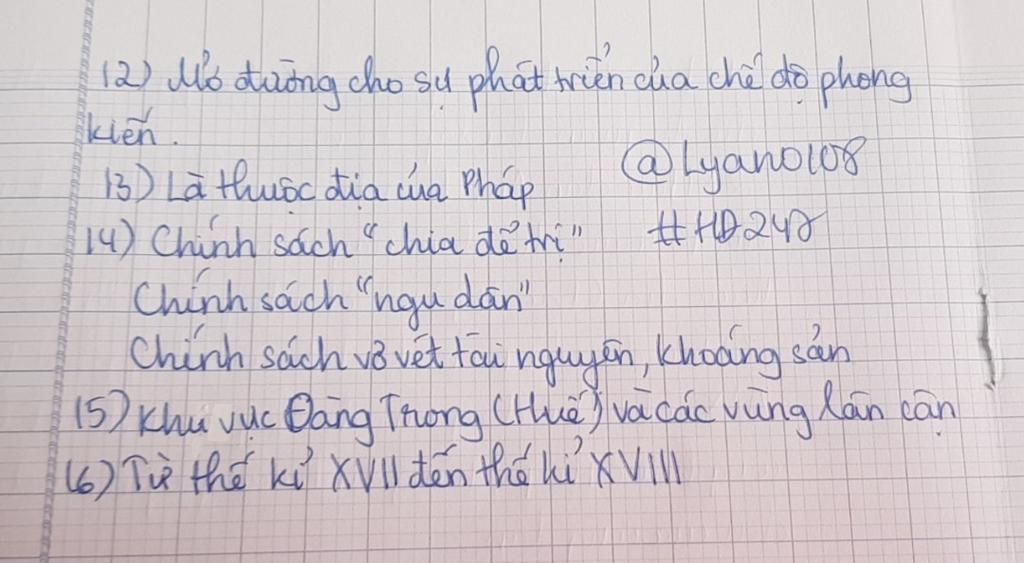 12) Mở đường cho sự phát triển của chế độ phong
kiến.
13) Là thuộc địa của Pháp
@Lyano108
14) Chính sách "chia để trị"
#HD247
Chính sách "ngu dân"
Chính sách vơ vét tài nguyên, khoáng sản
15) Khu vực Đàng Trong (Huế) và các vùng lân cận
16) Từ thế kỉ XVII đến thế kỉ XVIII